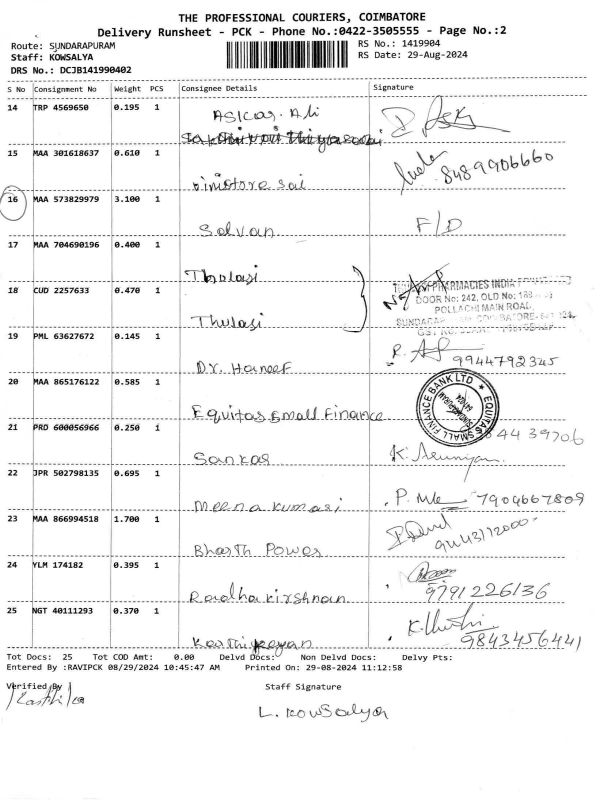 THE PROFESSIONAL COURIERS, COIMBATORE
Delivery Runsheet - PCK - Phone No.:0422-3505555 - Page No.:2
Route: SUNDARAPURAM
Staff: KOWSALYA
DRS No.: DCJB141990402
RS No.: 1419904
RS Date: 29-Aug-2024
S No Consignment No Weight PCS Consignee Details Signature
14 TRP 4569650 0.195 1 Askar. Ali
15 MAA 301618637 0.610 1 sai 8489906660
16 MAA 573829979 3.100 1 Salvan F/D
17 MAA 704690196 0.400 1 Thulasi
18 CUD 2257633 0.470 1 Thulasi
PHARMACIES INDIA
DOOR No: 242, OLD No:
POLLACHI MAIN ROAD,
19 PML 63627672 0.145 1 Dr. Haneef 9944792345
20 MAA 865176122 0.585 1 Equitas small Finance
EQUITAS SMALL FINANCE BANK LTD
21 PRD 600056966 0.250 1 Sankar 39706
22 JPR 502798135 0.695 1 Meena kumari P. 7904667809
23 MAA 866994518 1.700 1 Bharth Power
24 YLM 174182 0.395 1 Radhakirshnan 9791226136
25 NGT 40111293 0.370 1 Karthikeyan 9843456441
Tot Docs: 25 Tot COD Amt: 0.00 Delvd Docs: Non Delvd Docs: Delvy Pts:
Entered By :RAVIPCK 08/29/2024 10:45:47 AM Printed On: 29-08-2024 11:12:58
Verified By
Staff Signature
L. Kowsalya